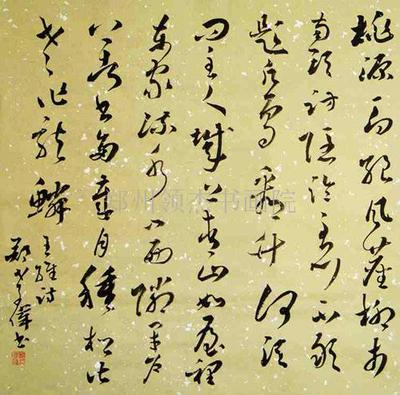 桃源一向絕風塵柳市
南頭訪隱淪到門不敢
題凡鳥看竹何須
問主人城上青山如屋裡
東家流水入西鄰閉戶
著書多歲月種松皆
老作龍鱗 王維詩
鄭偉書
郑州领杰书画院